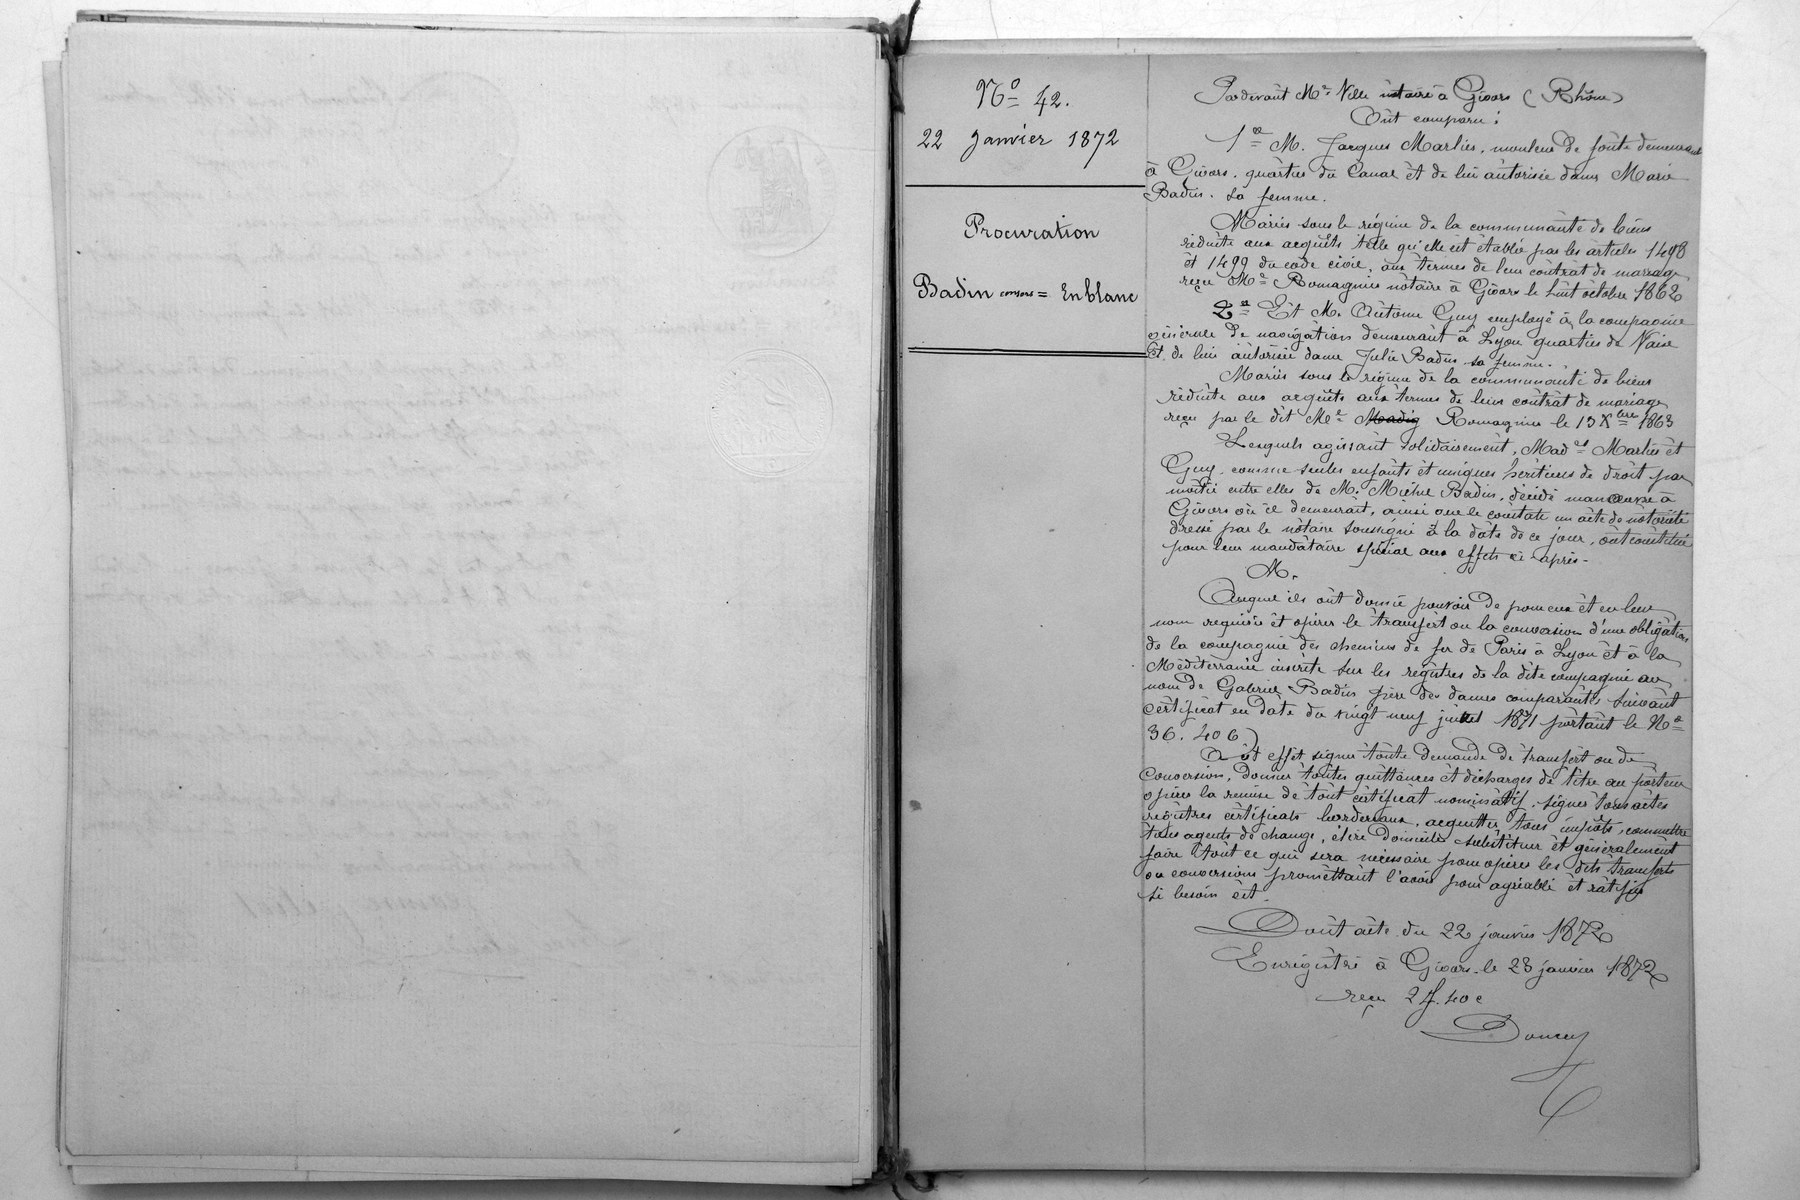 No 42.
22 Janvier 1872
Procuration
Badin consors = En blanc
Pardevant Me Ville notaire à Givors (Rhône)
Ont comparu :
1o M. Jacques Marliès, mouleur de fonte demeurant
à Givors, quartier du Canal et de lui autorisée dame Marie
Badin, sa femme.
Mariés sous le régime de la communauté de biens
réduite aux acquêts telle qu'elle est établie par les articles 1498
et 1499 du code civil, aux termes de leur contrat de mariage
reçu Me Romagnier notaire à Givors le huit octobre 1862
2o Et M. Antoine Guy employé à la compagnie
générale de navigation demeurant à Lyon quartier de Vaise
Et de lui autorisée dame Julie Badin sa femme.
Mariés sous le régime de la communauté de biens
réduite aux acquêts aux termes de leur contrat de mariage
reçu par le dit Me Romagnier le 13 Xbre 1863
Lesquels agissant solidairement, Mades Marliès et
Guy, comme seules enfants et uniques héritières de droit par
moitié entre elles de M. Badin, décédé manœuvre à
Givors où il demeurait, ainsi que le constate un acte de notoriété
dressé par le notaire soussigné à la date de ce jour, ont constitué
pour leur mandataire spécial aux effets ci après -
M.
Auquel ils ont donné pouvoir de pour eux et en leur
nom requérir et opérer le transfert ou la conversion d'une obligation
de la compagnie des chemins de fer de Paris à Lyon et à la
Méditerranée inscrite sur les registres de la dite compagnie au
nom de Gabriel Badin père des dames comparantes suivant
certificat en date du vingt neuf juillet 1871 portant le No
36.406)
A cet effet signer toute demande de transfert ou de
conversion, donner toutes quittances et décharges de titre au porteur
opérer la remise de tout certificat nominatif, signer tous actes
registres certificats bordereaux, acquitter tous impôts, commettre
tous agents de change, élire domicile substituer et généralement
faire tout ce qui sera nécessaire pour opérer les dits transferts
ou conversions promettant l'avoir pour agréable et ratifier
si besoin est.
Dont acte du 22 janvier 1872
Enregistré à Givors le 23 janvier 1872
reçu 2 f. 40 c